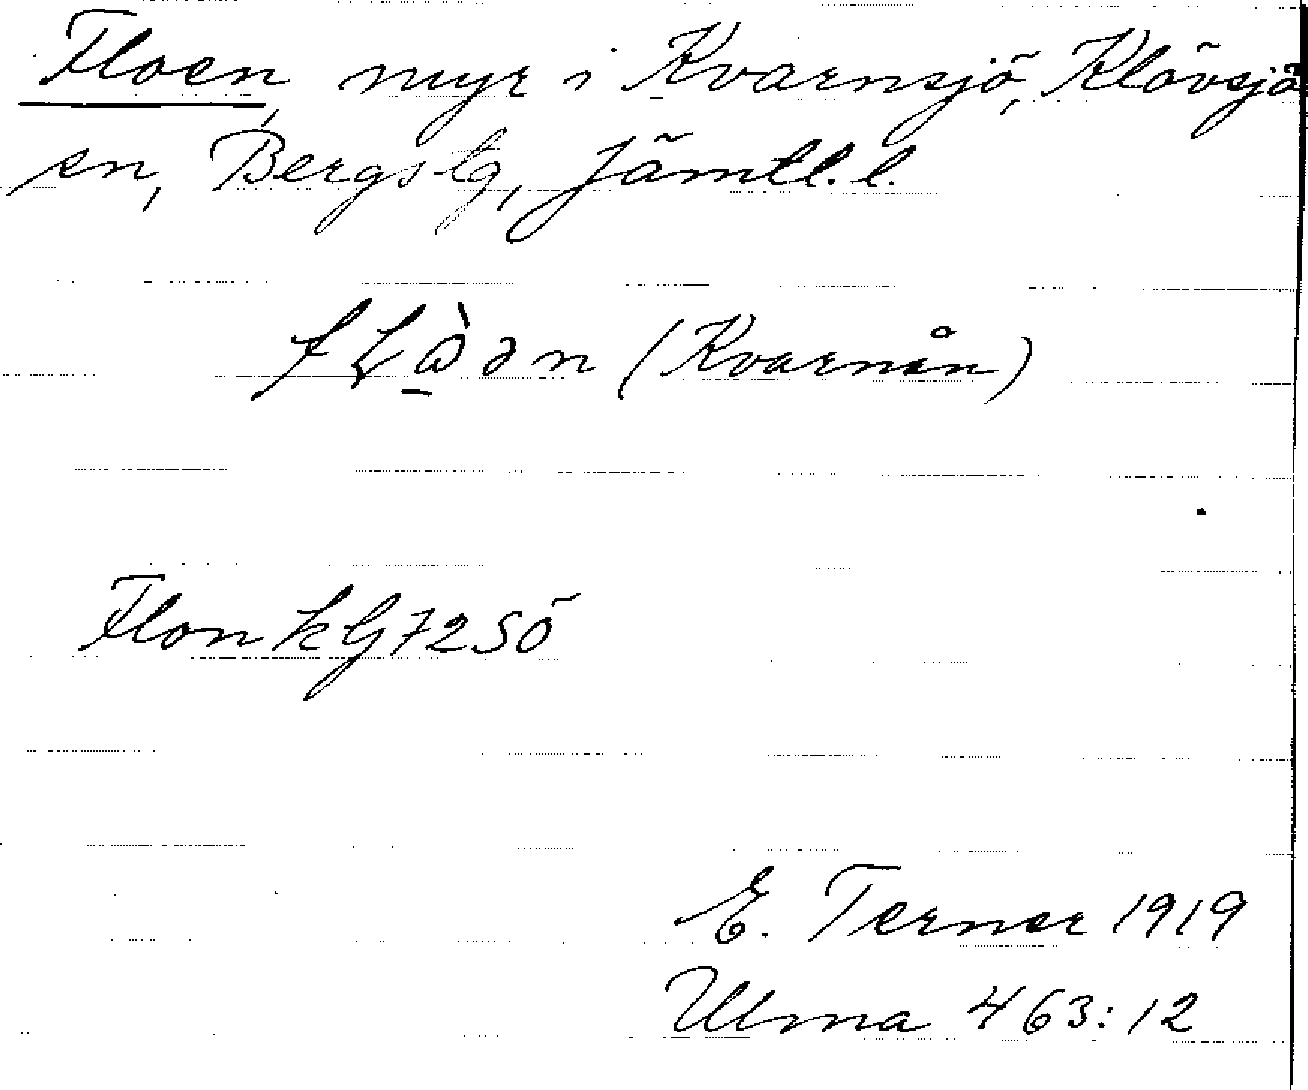 Floen, myr i Kvarnsjö, Klövsjö
sn, Bergs tg, Jämtl. l.
fLòən (Kvarnån)
Flon kG72SÖ
E. Terner 1919
Ulma 463:12